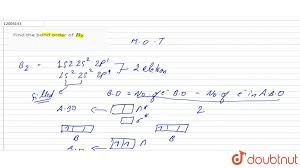 12006143
Find the bond order of B₂
M.O.T
B₂ = 1s² 2s² 2p¹
1s² 2s² 2p¹ } → 2 elektron
filled B.O = No of e⁻ B.O - No of e⁻ in A.B.O
2
A·BO ← π*
σ*
B B
doubtnut